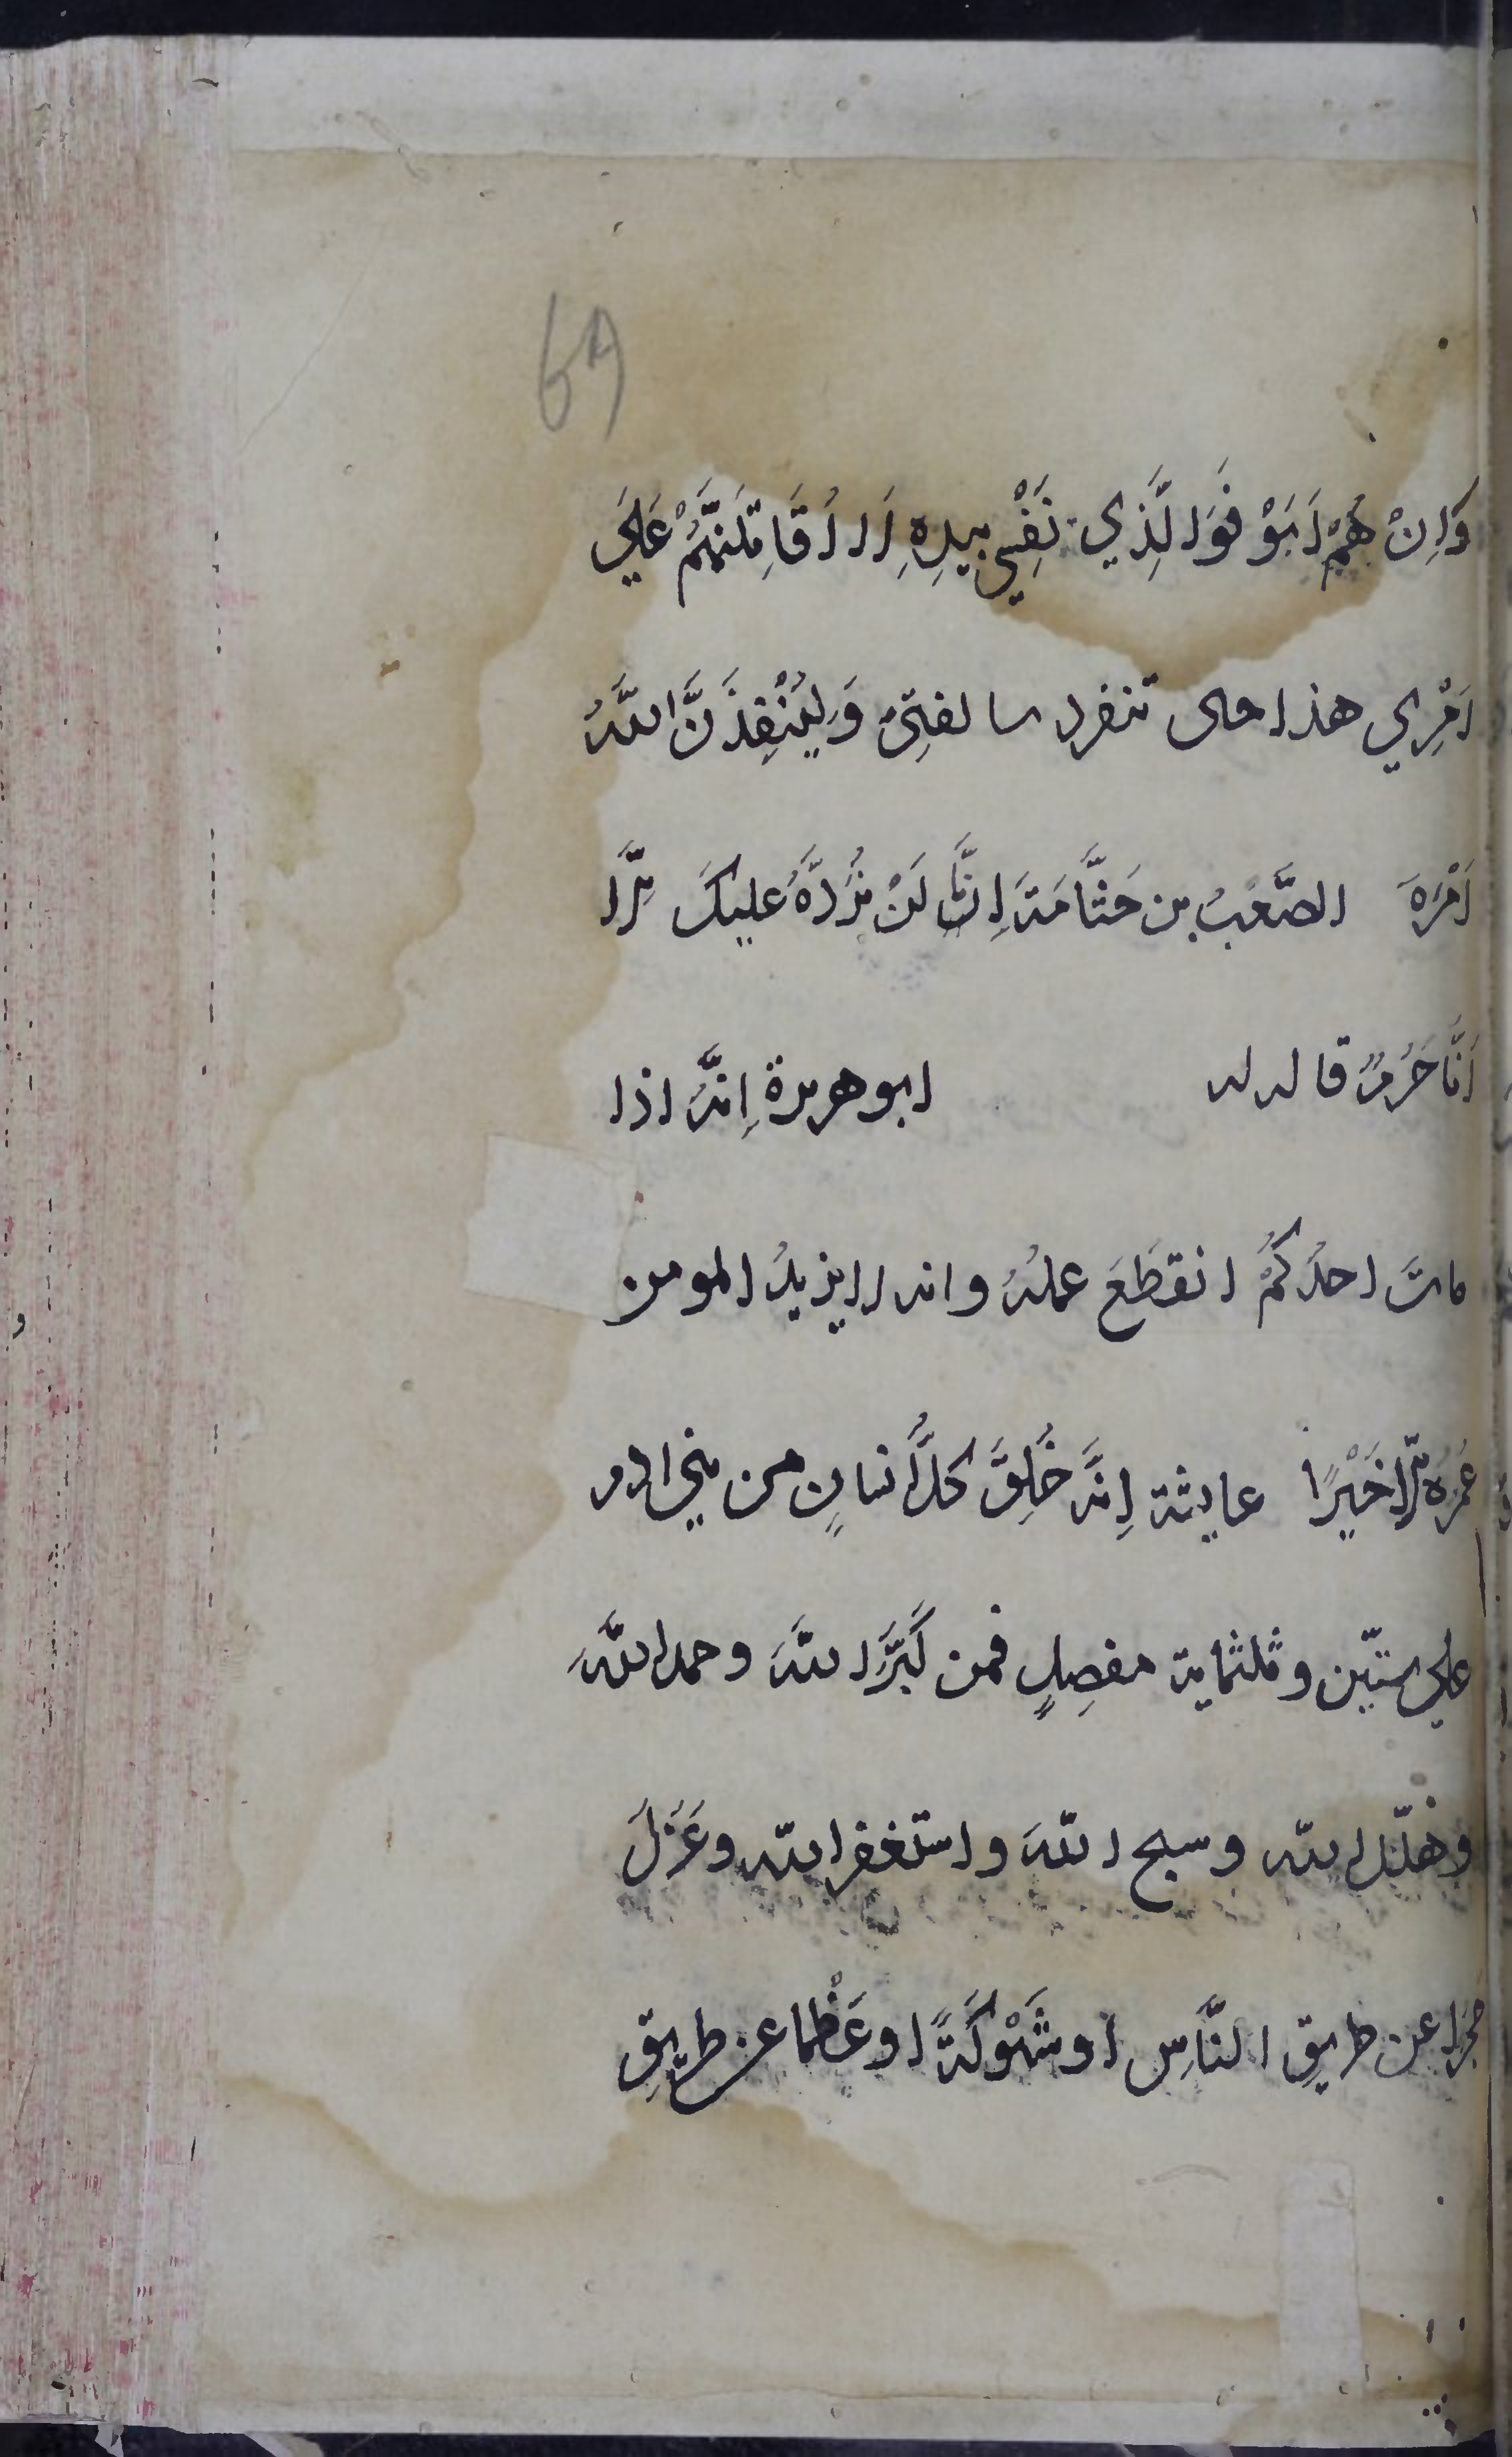 69
وَاِنْ هُمْ اَبَوْ فَوَالَّذِي نَفْسِي بِيَدِهِ لَاُقَاتِلَنَّهُمْ عَلَي
اَمْرِي هذا حتى تنفرد سالفتِي وَلَيُنْفِذَنَّ اللَّهُ
اَمْرَهَ الصَّعْبُ بن جَثَّامَةَ اِنَّا لَنْ نَرُدَّهُ عليكَ اِلَّا
اَنَّا حُرُمٌ قاله له ابو هريرة اِنَّهُ اذا
ماتَ احدُكُمْ انقطَعَ عملُهُ وانه لا يزيدُ المومن
عُمرُهُ اِلَّا خَيْرًا عايشة اِنَّهُ خُلِقَ كلُّ انسانٍ من بني ادم
علي ستّين وثلثماية مفصِلٍ فمن كَبَّرَ اللهَ وحمد اللَّهَ
وهلّل الله وسبح اللهَ واستغفر الله وعَزَلَ
حجَرا عن طريقِ النَّاسِ او شَوْكَةً او عَظْما عن طريقِ